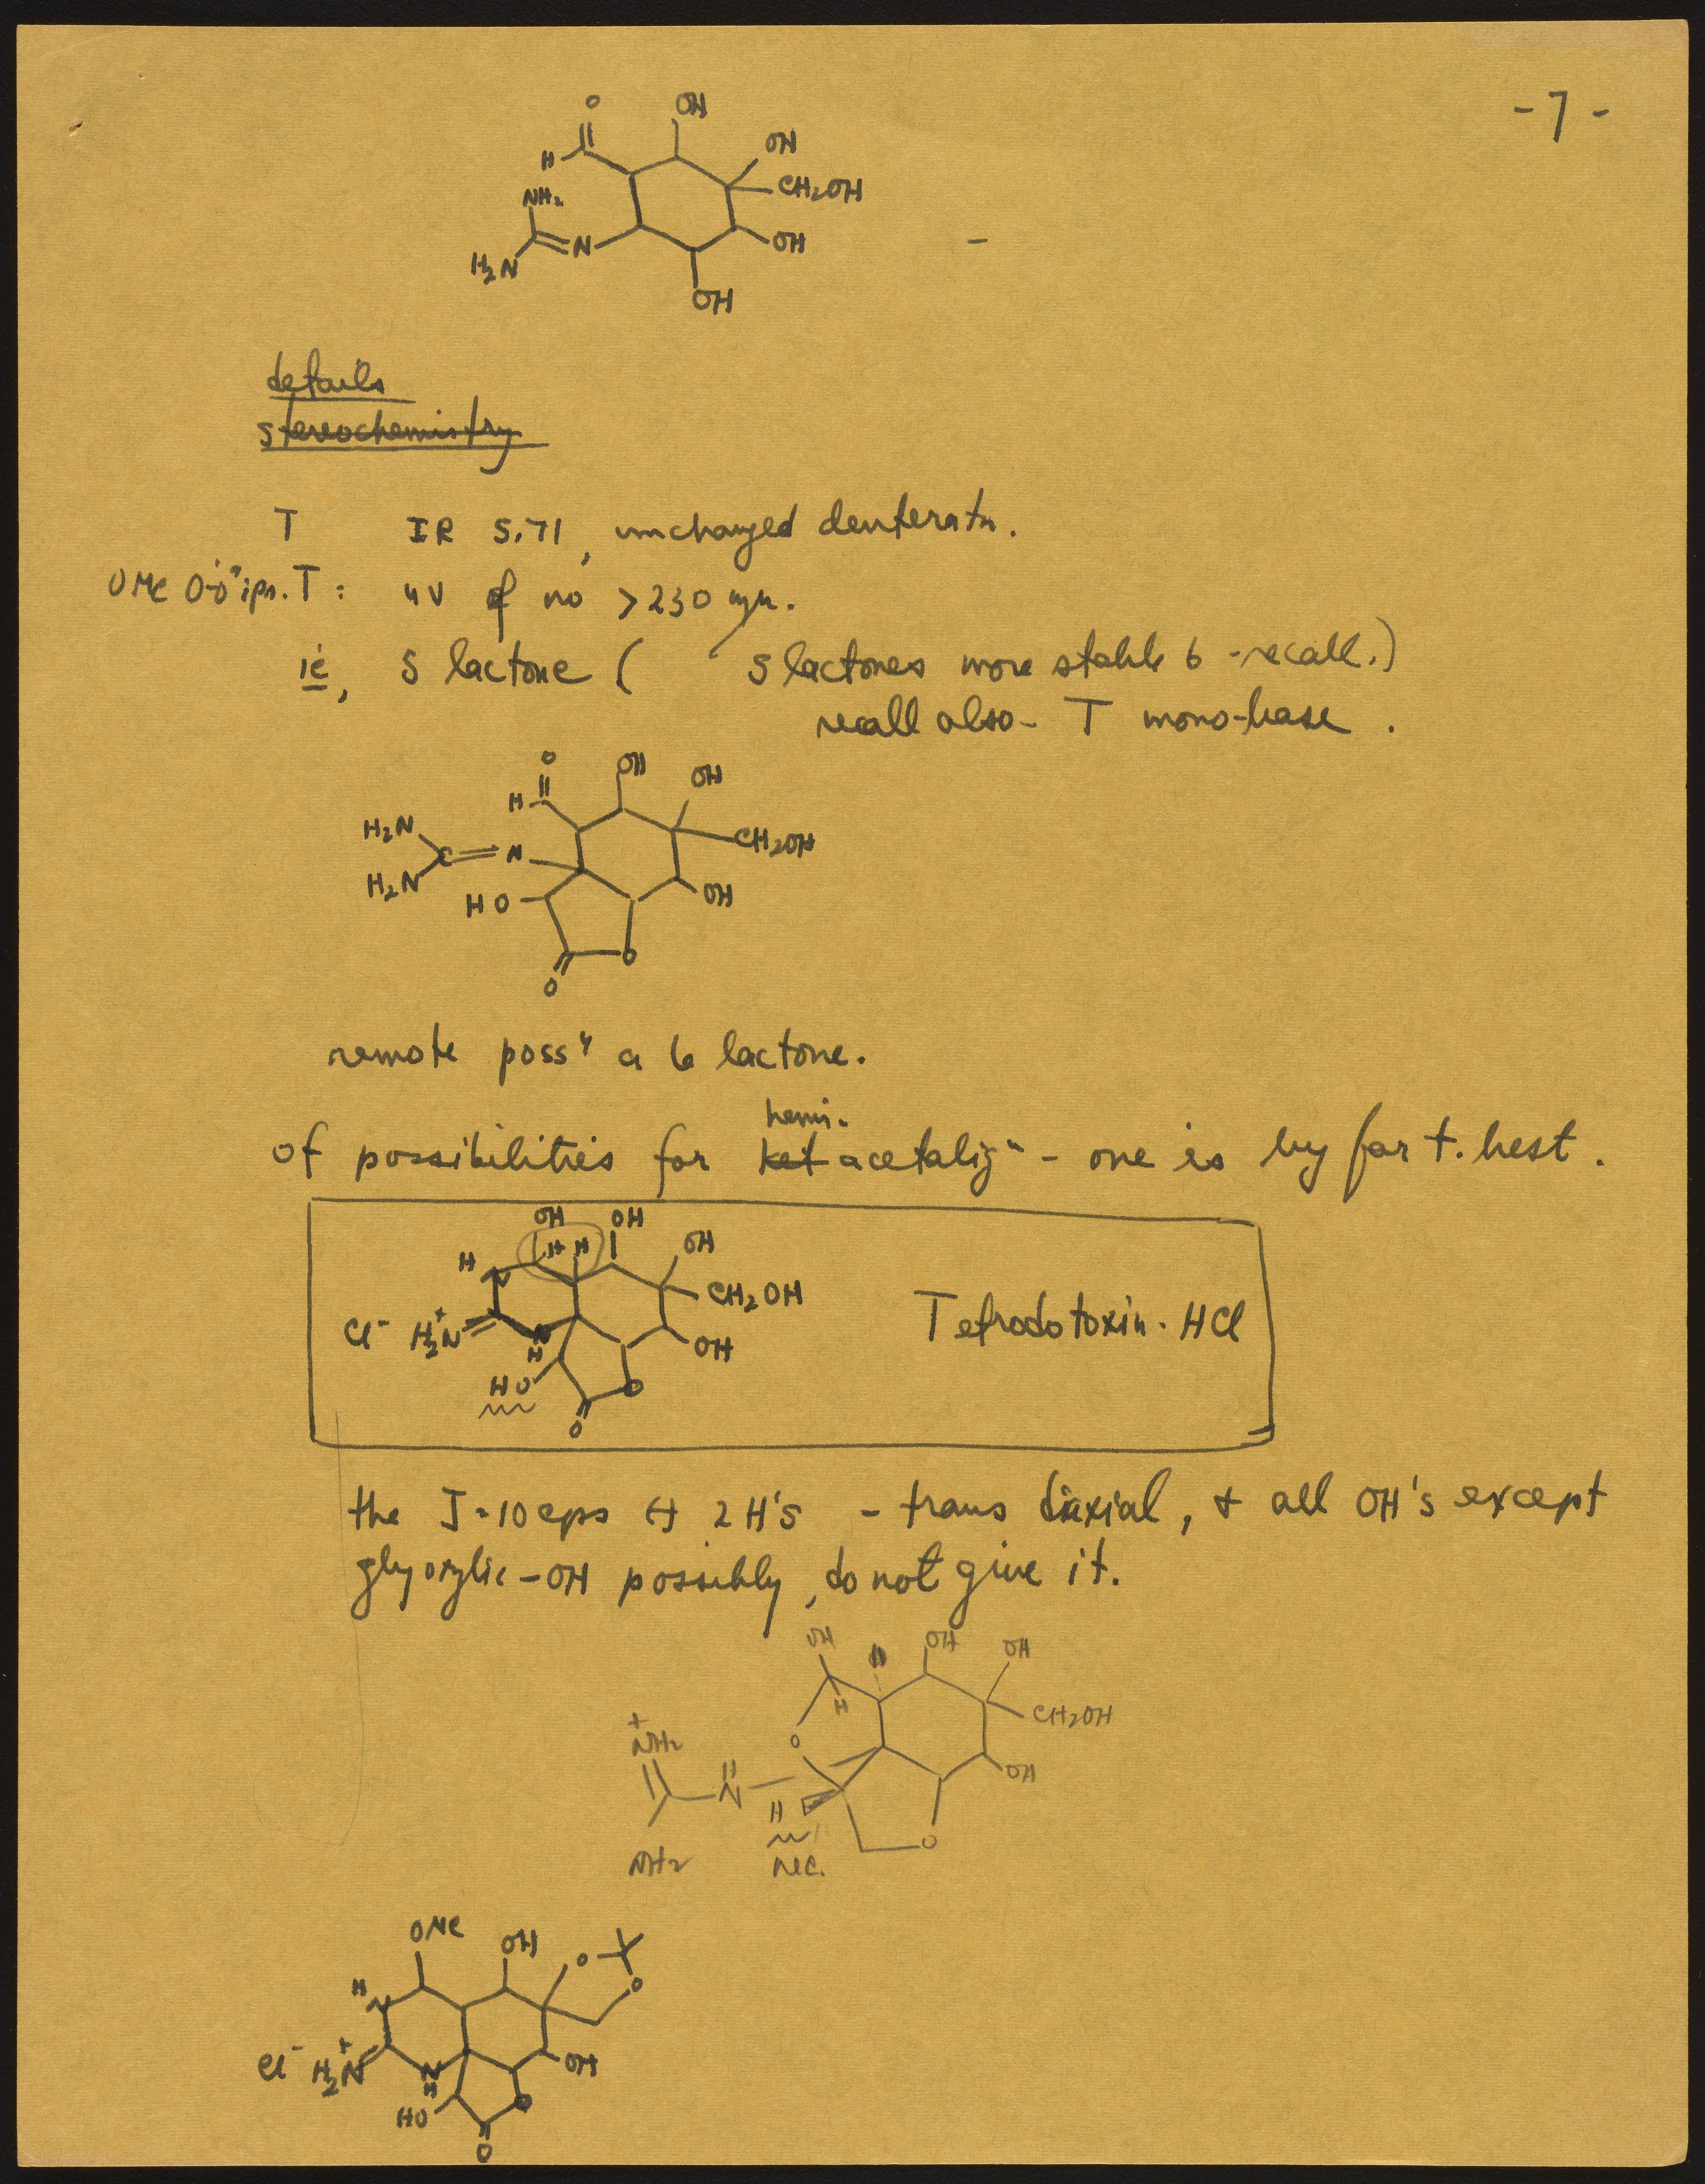 -7-
O
OH
H
OH
CH2OH
NH2
N
H2N
OH
OH
details
stereochemistry
T IR 5.71, unchanged deuteratn.
OMe O-O ips. T: uv of no >230 mμ.
ie, 5 lactone ( 5 lactones more stable 6 - recall.)
recall also - T mono-base.
O
OH
OH
H
H2N
C
N
CH2OH
H2N
HO
OH
O
O
remote possy a 6 lactone.
hemi.
of possibilities for ket acetalizn - one is by far t. best.
OH
OH
H
H
H
OH
N
CH2OH
Cl- H2N+
N
H
OH
Tetrodotoxin. HCl
HO
O
O
the J=10cps ↔ 2 H's - trans diaxial, + all OH's except
glyoxylic-OH possibly, do not give it.
OH
H
OH
OH
H
CH2OH
+
NH2
O
N
OH
H
O
NH2
nec.
OMe
OH
O
O
H
N
Cl- H2N+
N
H
OH
HO
O
O